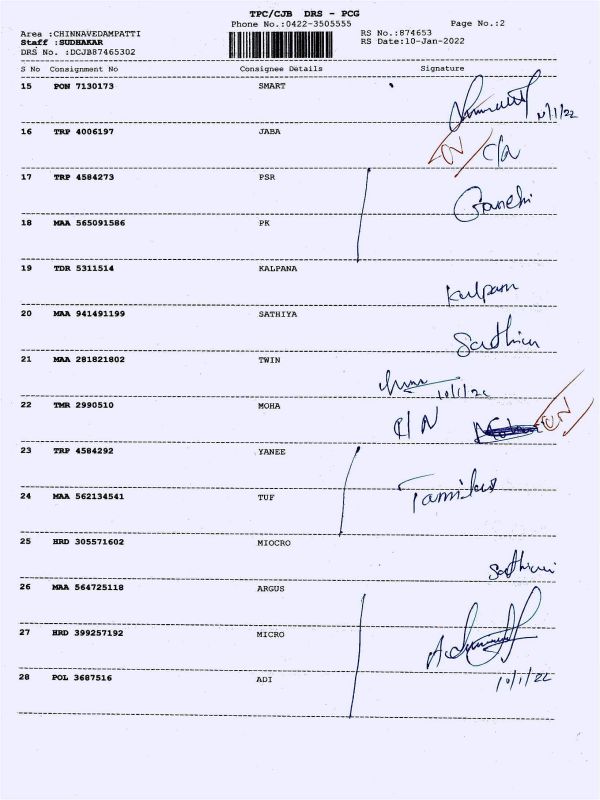 TPC/CJB DRS - PCG
Phone No.:0422-3505555 Page No.:2
Area :CHINNAVEDAMPATTI RS No.:874653
Staff :SUDHAKAR RS Date:10-Jan-2022
DRS No. :DCJB87465302
S No Consignment No Consignee Details Signature
15 PON 7130173 SMART
16 TRP 4006197 JABA
17 TRP 4584273 PSR
18 MAA 565091586 PK
19 TDR 5311514 KALPANA
Kalpana
20 MAA 941491199 SATHIYA
21 MAA 281821802 TWIN
10/1/22
22 TMR 2990510 MOHA
23 TRP 4584292 YANEE
24 MAA 562134541 TUF
25 HRD 305571602 MIOCRO
26 MAA 564725118 ARGUS
27 HRD 399257192 MICRO
28 POL 3687516 ADI
10/1/22